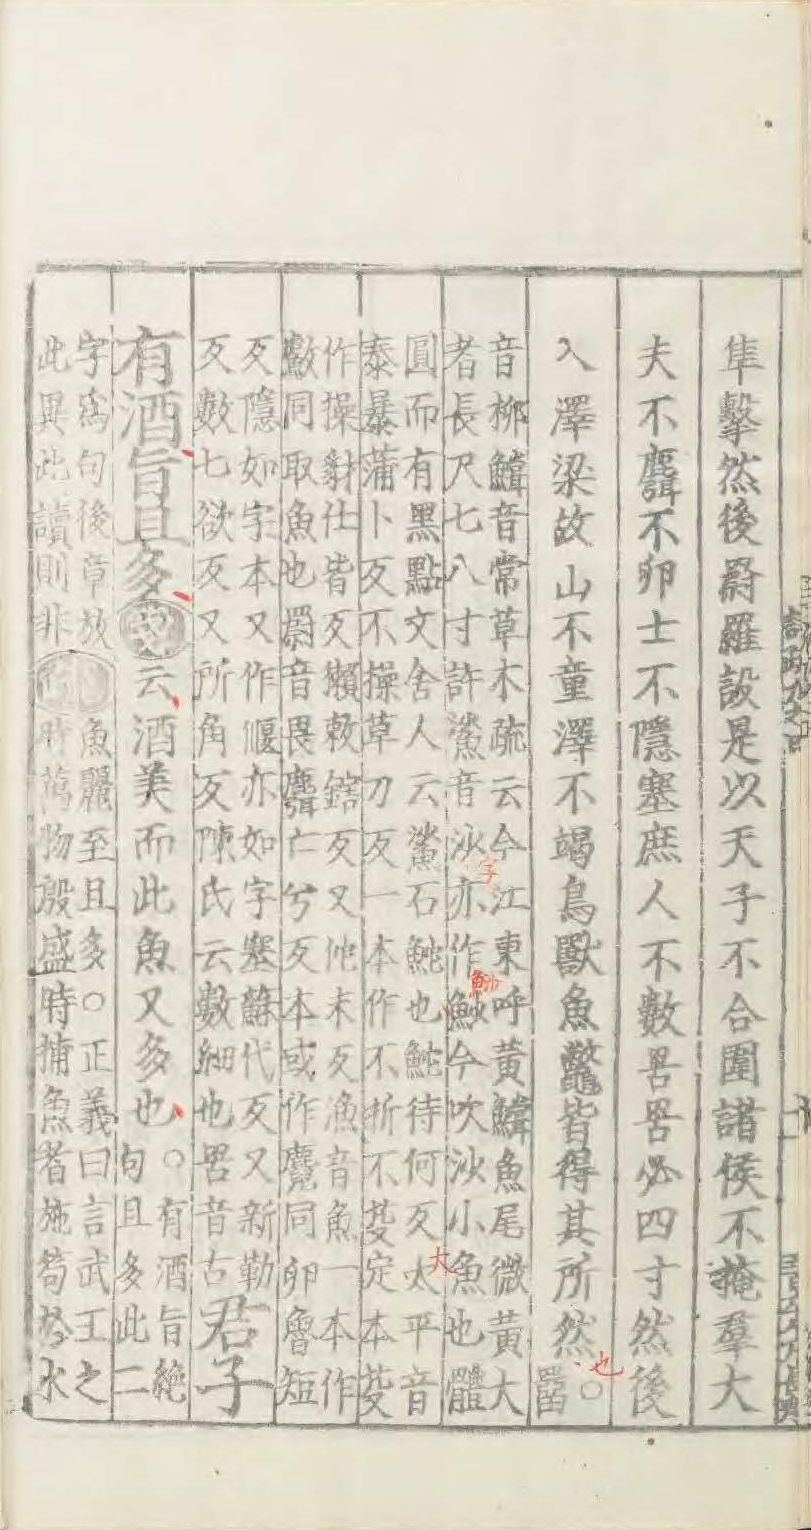 隼擊然後罻羅設是以天子不合圍諸侯不掩羣大
夫不麛不卵士不隱塞庶人不數罟罟必四寸然後
入澤梁故山不童澤不竭鳥獸魚鼈皆得其所然也○罶
音柳鱨音常草木疏云今江東呼黃鱨魚尾微黃大
者長尺七八寸許鯊音沙亦作魦字今吹沙小魚也體
圓而有黑點文舍人云鯊石鮀也鮀待何反大太平音
泰暴蒲卜反不操草刀反一本作不折不芟定本芟
作操豺仕皆反獺敕鎋反又他末反漁音魚一本作
䱷同取魚也罻音畏麛亡兮反本或作麑同卵魯短
反隱如字本又作偃亦如字塞蘇代反又新勒
反數七欲反又所角反陳氏云數細也罟音古君子
有酒旨且多箋云酒美而此魚又多也○有酒旨絶
句且多此二
字爲句後章放
此異此讀則非
魚麗至且多○正義曰言武王之
時萬物殷盛時捕魚者施笱於水